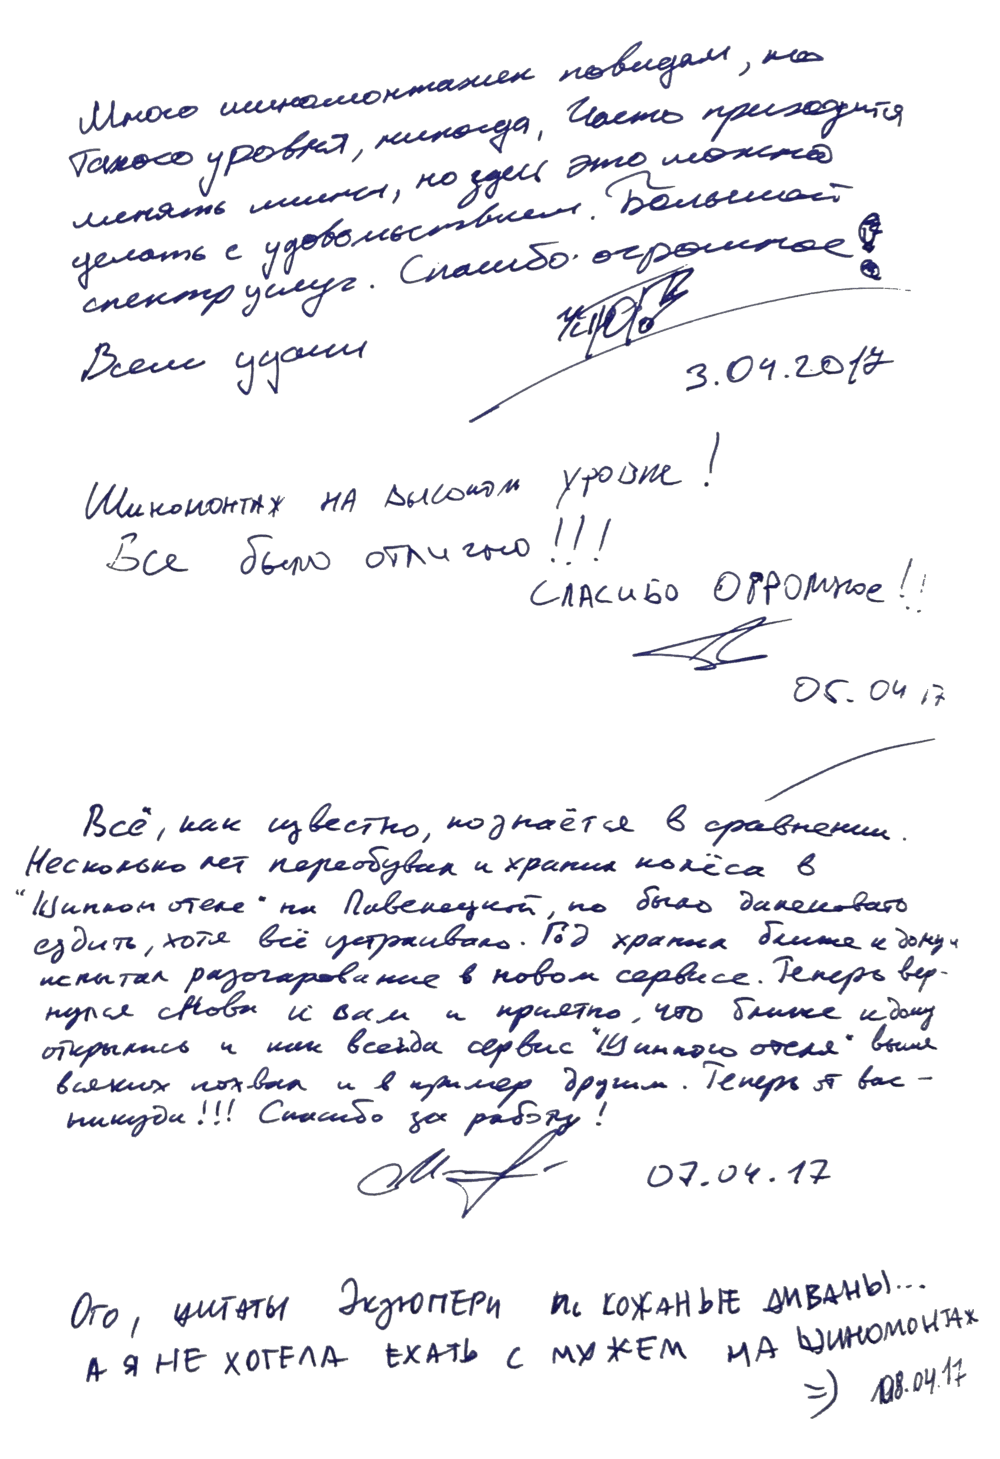 Много шиномонтажек повидал, но
такого уровня, никогда, Часто приходится
менять шины, но здесь это можно
делать с удовольствием. Большой
спектр услуг. Спасибо огромное!
Всем удачи
3.04.2017
Шиномонтаж на высоком уровне!
Все было отлично!!!
Спасибо огромное!!!
05.04 17
Всё, как известно, познаётся в сравнении.
Несколько лет переобувал и хранил колёса в
"Шинном отеле" на Павелецкой, но было далековато
ездить, хотя всё устраивало. Год хранил ближе к дому и
испытал разочарование в новом сервисе. Теперь вер-
нулся снова к вам и приятно, что ближе к дому
открылись и как всегда сервис "Шинного отеля" выше
всяких похвал и в пример другим. Теперь от вас –
никуда!!! Спасибо за работу!
07.04.17
Ого, цитаты Экзюпери и кожаные диваны...
а я не хотела ехать с мужем на шиномонтаж
=) 08.04.17